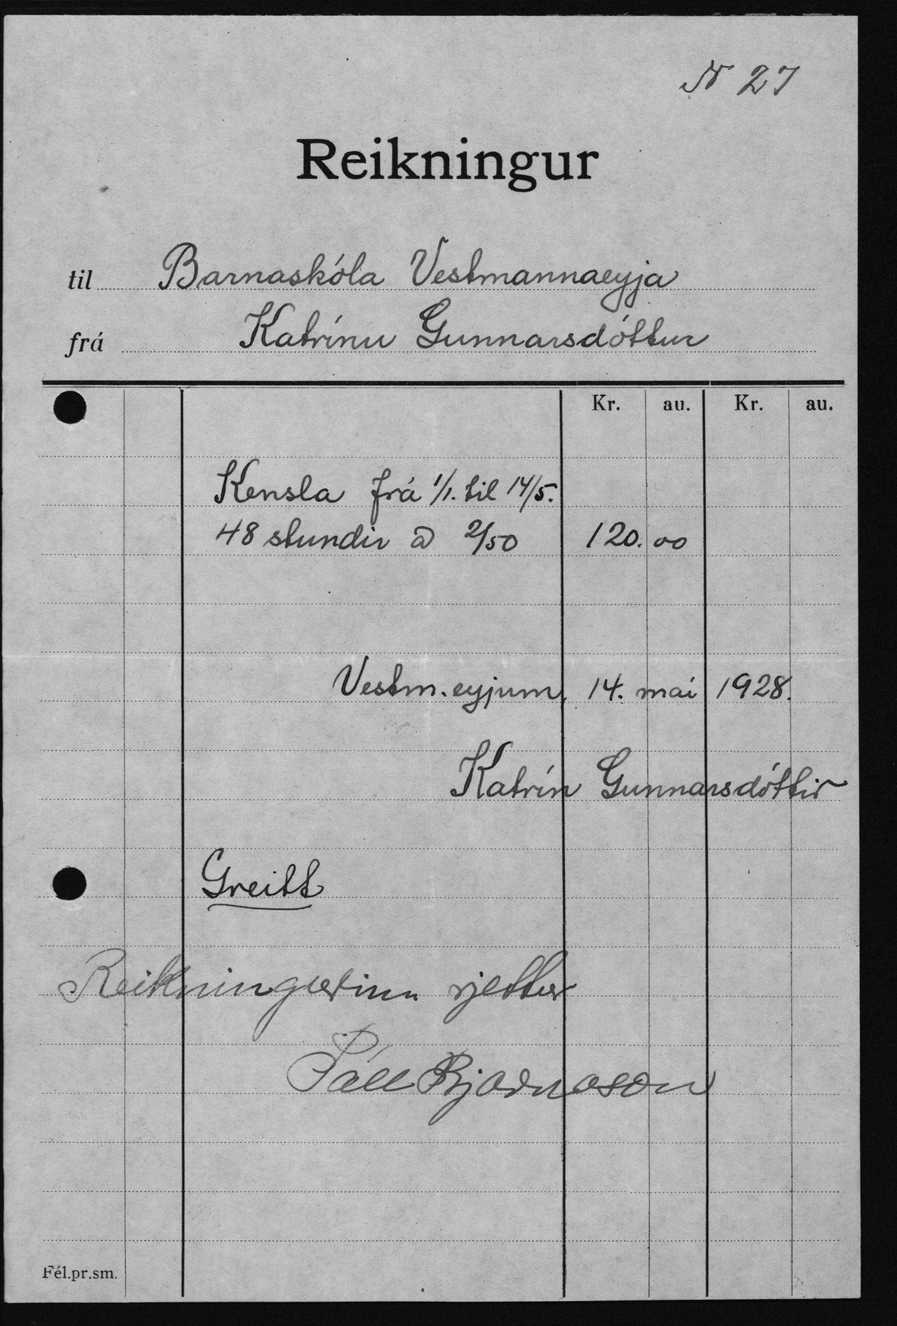 N 27
Reikningur
til Barnaskóla Vestmannaeyja
frá Katrínu Gunnarsdóttur
Kr. au. Kr. au.
Kensla frá 1/1. til 14/5.
48 stundir a 2/50 120.00
Vestm.eyjum, 14. maí 1928.
Katrín Gunnarsdóttir
Greitt
Reikningurinn rjettur
Páll Bjarnason
Fél.pr.sm.